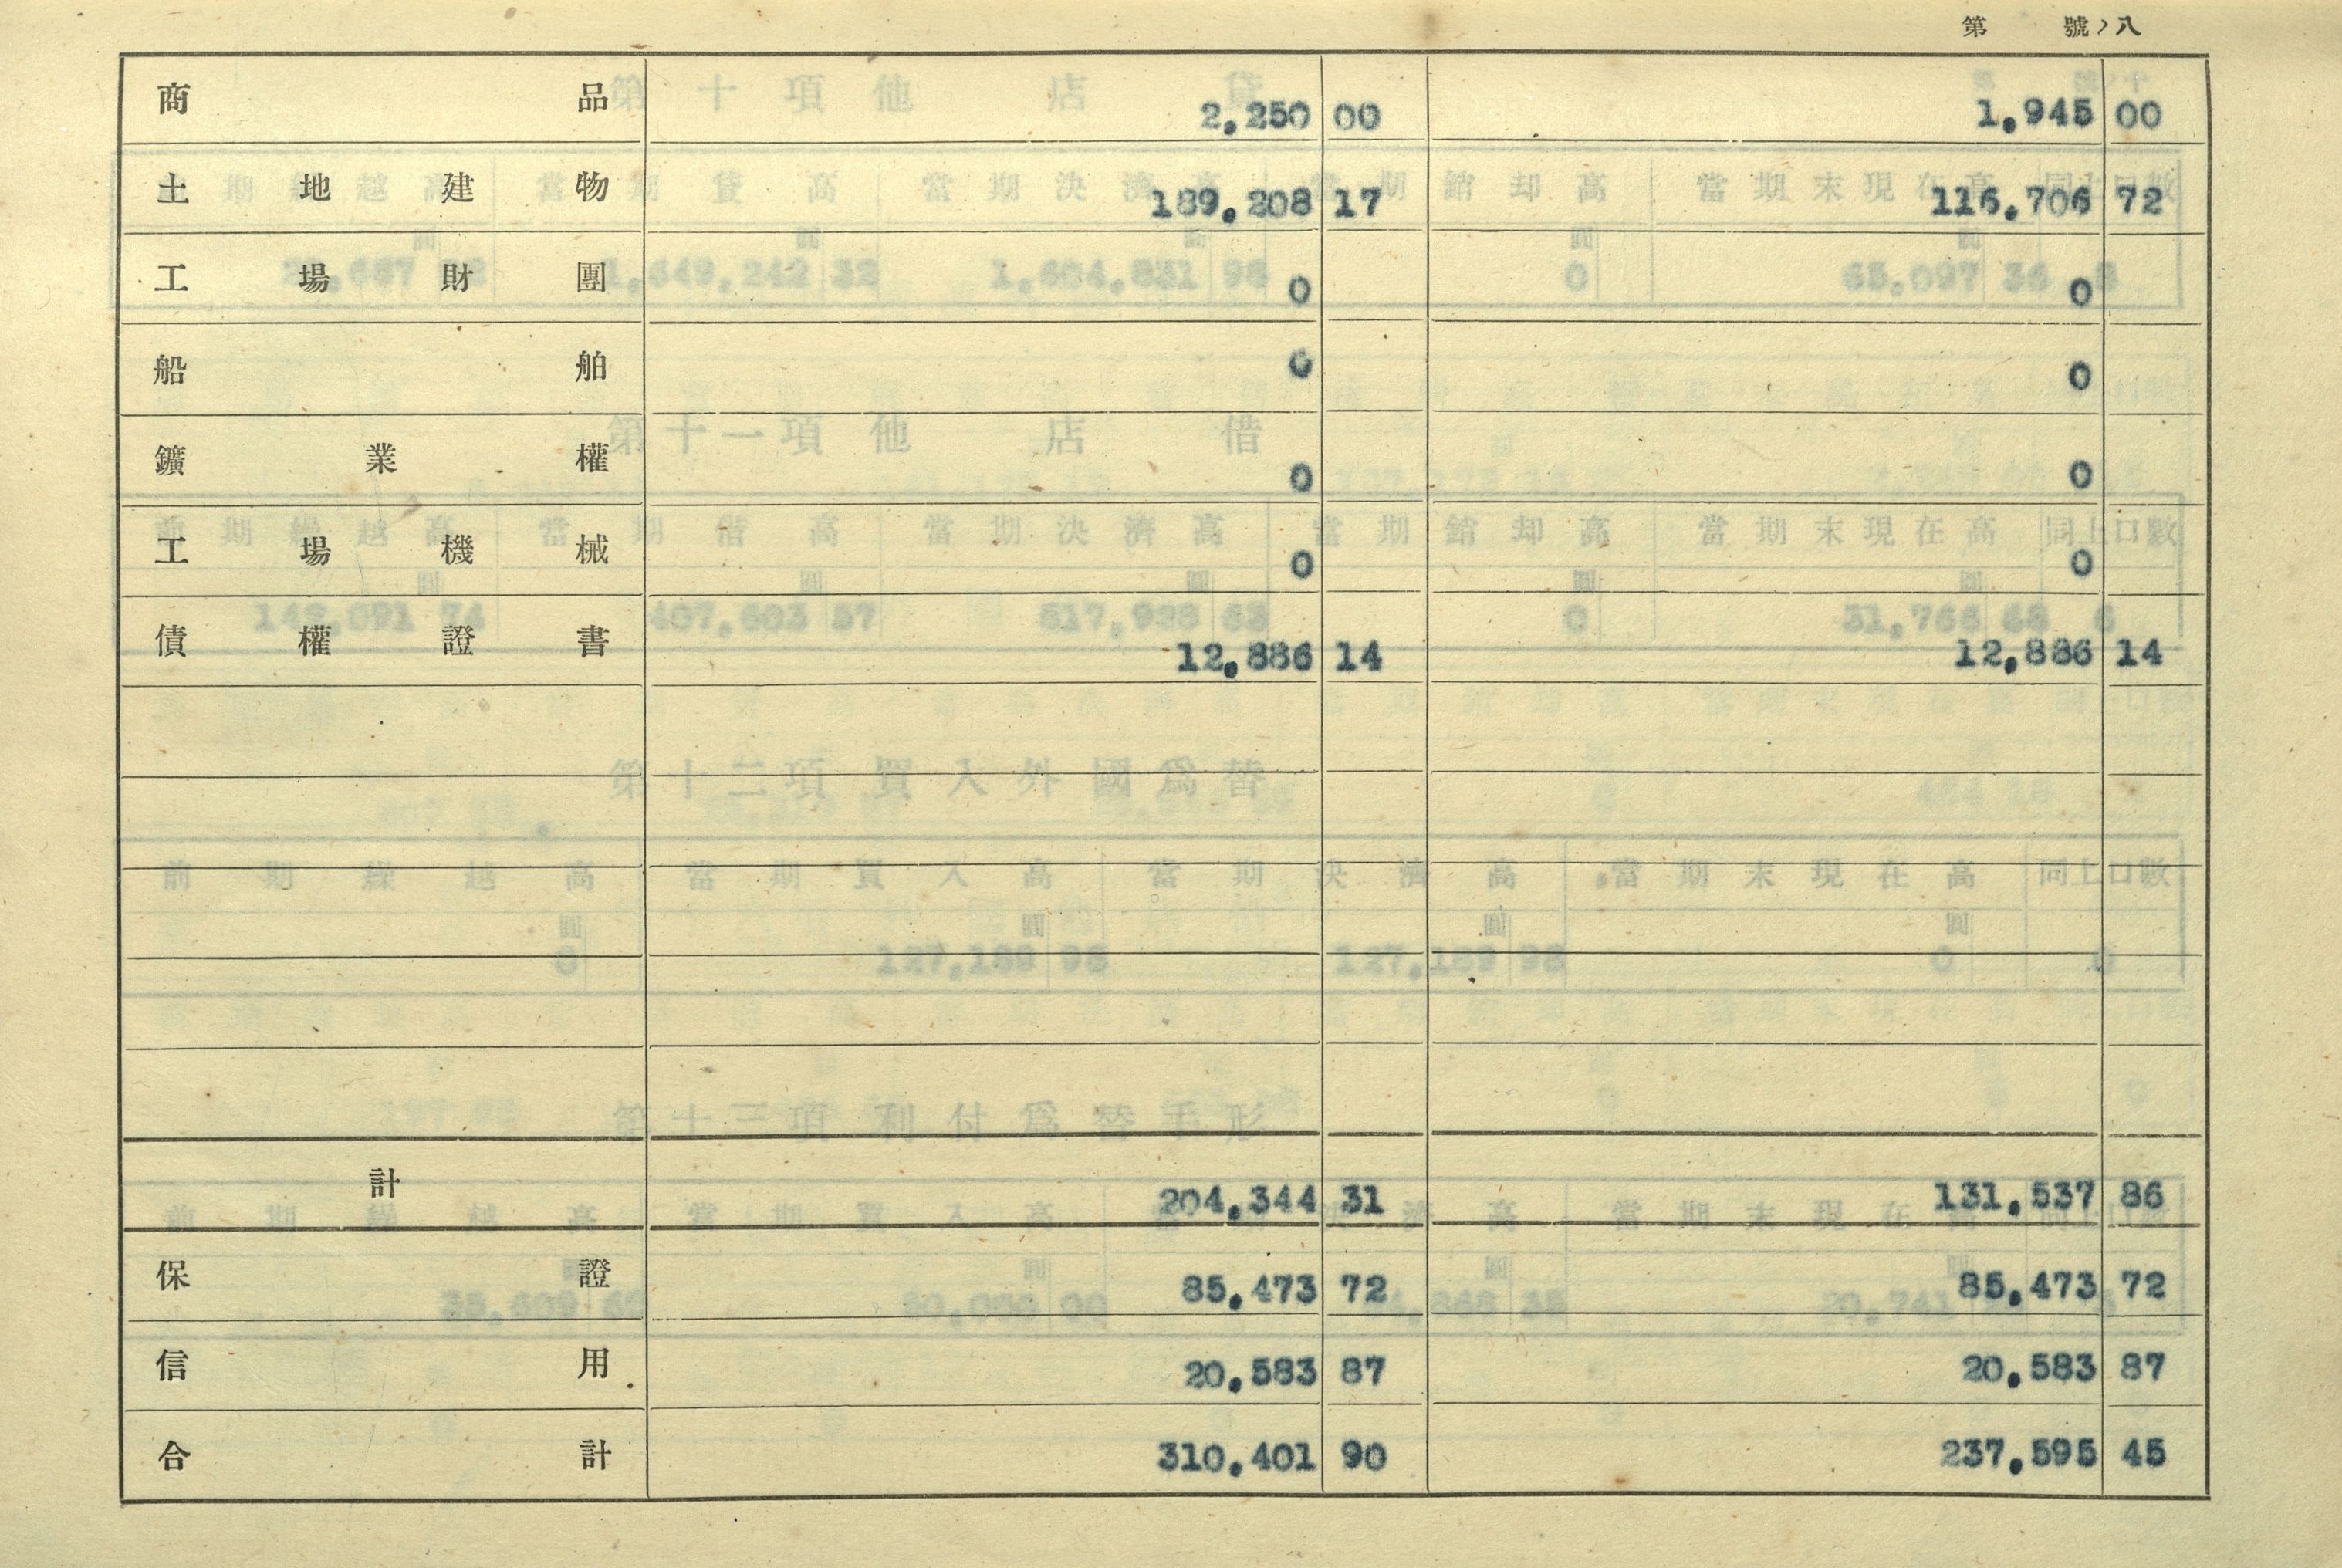 第 號ノ八
商品 2,250 00 1,945 00
土地建物 189,208 17 116,706 72
工場財團 0 0
船舶 0 0
鑛業權 0 0
工場機械 0 0
債權證書 12,886 14 12,886 14
計 204,344 31 131,537 86
保證 85,473 72 85,473 72
信用 20,583 87 20,583 87
合計 310,401 90 237,595 45